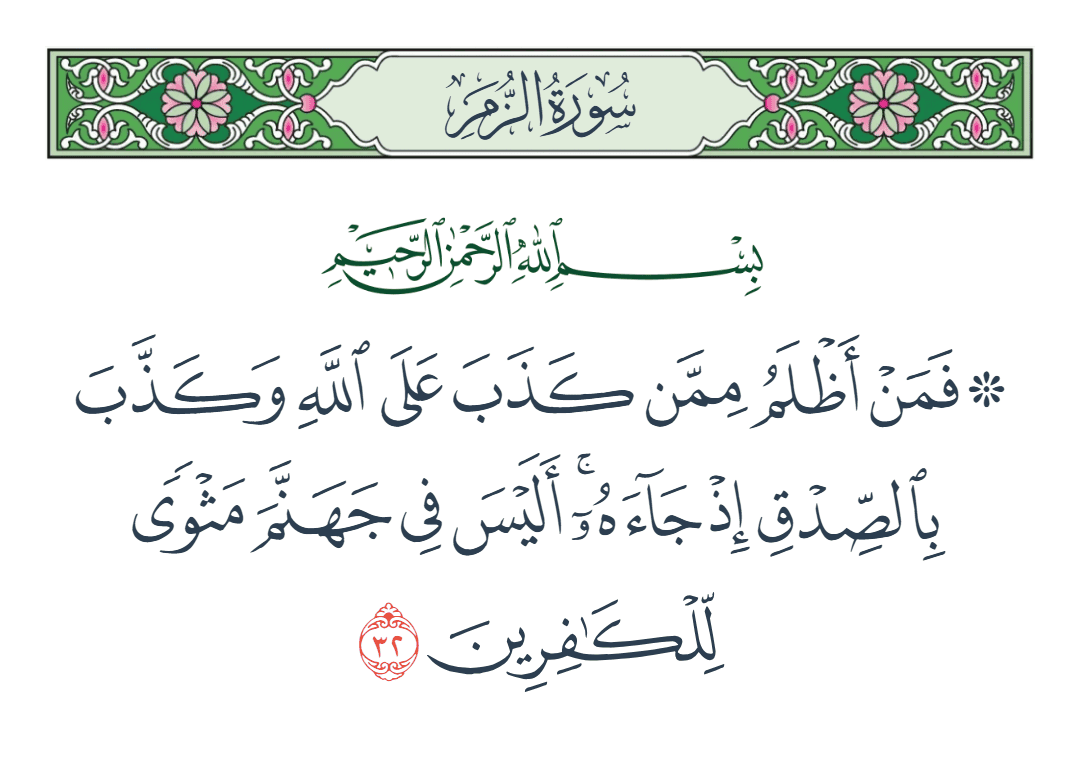 سُورَةُ الزُّمَرِ
بِسْمِ ٱللَّهِ ٱلرَّحْمَٰنِ ٱلرَّحِيمِ
۞ فَمَنْ أَظْلَمُ مِمَّن كَذَبَ عَلَى ٱللَّهِ وَكَذَّبَ
بِٱلصِّدْقِ إِذْ جَآءَهُۥٓ ۚ أَلَيْسَ فِى جَهَنَّمَ مَثْوًى
لِّلْكَٰفِرِينَ ٣٢